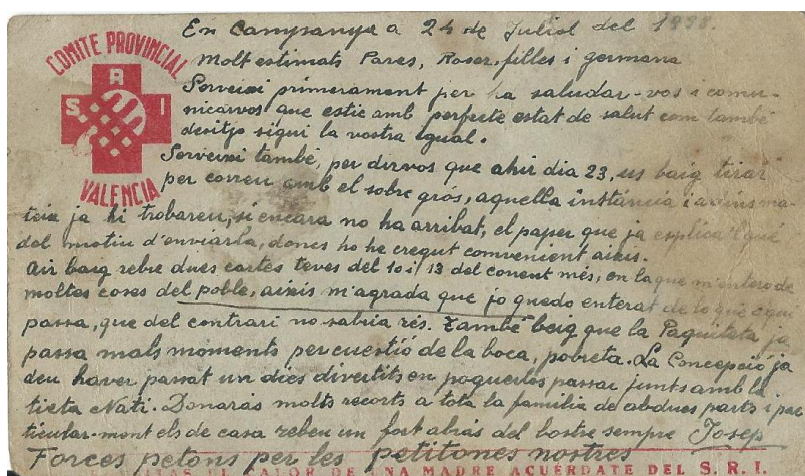 COMITE PROVINCIAL
S R A I
VALENCIA
En Campanya a 24 de Juliol del 1938.
Molt estimats Pares, Roser, filles i germana
Serveixi primerament per ha saludar-vos i comu-
nicarvos que estic amb perfecte estat de salut com també
desitjo sigui la vostra igual.
Serveixi també, per dirvos que ahir dia 23, us baig tirar
per correu amb el sobre grós, aquella instáncia i adins ma-
teix ja hi trobareu, si encara no ha arribat, el paper que ja esplica qué
del motiu d'enviarla, doncs ho he cregut convenient aixis.
Air baig rebre dues cartes teves del 10 i 13 del corrent més, en la que m'entero de
moltes coses del poble, aixis m'agrada que jo quedo enterat de lo que aqui
passa, que del contrari no sabria rés. També beig que la Paquiteta ja
passa mals moments per cuestió de la boca, pobreta. La Concepció ja
deu haver passat un dies divertits en poguerlos passar junts amb la
tieta Nati. Donarás molts recorts a tota la familia de abdues parts i par
ticular-ment els de casa rebeu un fort abrás del bostre sempre Josep
Forces petons per les petitones nostres
VALOR DE UNA MADRE ACUERDATE DEL S. R. I.